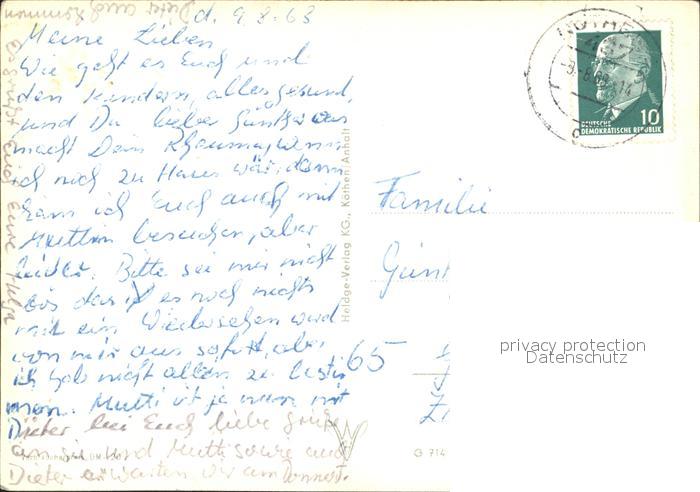 d. 9.8.63
Meine Lieben
Wie geht es Euch und
den Kindern, alles gesund,
und Du lieber Günther was
macht Dein Rheuma, wenn
ich nich zu Haus wär, dann
käm ich Euch auch mit
Muttin besuchen, aber
leider. Bitte sei mir nicht
bös das es noch nichts
mit ein Wiedersehen wird
von mir aus sofort, aber
ich hab nicht allein zu bestim
men. Mutti ist ja nun mit
Dieter bei Euch liebe Grüße
an sie und Mutti sowie auch
Dieter erwarten wir am Donnerst.
Es grüßt Euch Eure Helga
Dieter und
Heldge-Verlag KG., Köthen/Anhalt
10
DEUTSCHE
DEMOKRATISCHE REPUBLIK
Familie
Günt
65
privacy protection
Datenschutz
G 714